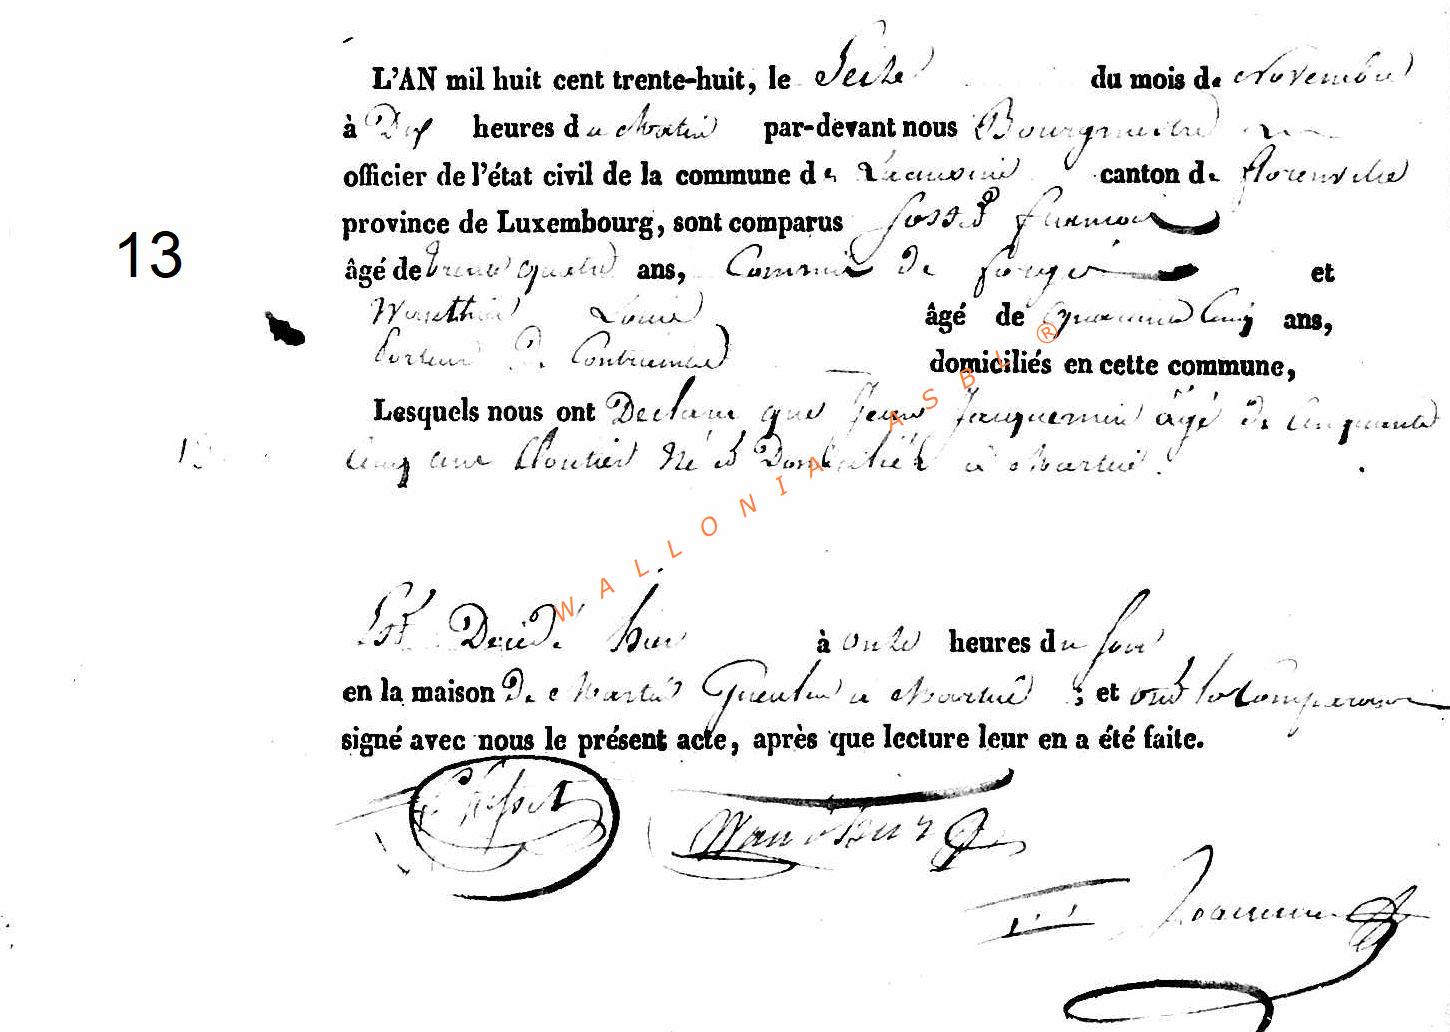 L'AN mil huit cent trente-huit, le Seize du mois de Novembre
à Dix heures du Matin par-devant nous Bourgmestre
officier de l'état civil de la commune de canton de florenville
province de Luxembourg, sont comparus
âgé de trente quatre ans, Commis de forges et
13
Louis âgé de quarante Cinq ans,
domiciliés en cette commune,
Lesquels nous ont Déclaré que Jean Jacquemin âgé de Cinquante
13 Cinq ans Cloutier Né et Domicilié à Martué.
WALLONIA ASBL ®
Est Décédé hier à onze heures du soir
en la maison De Martin à Martué ; et ont les Comparans
signé avec nous le présent acte, après que lecture leur en a été faite.